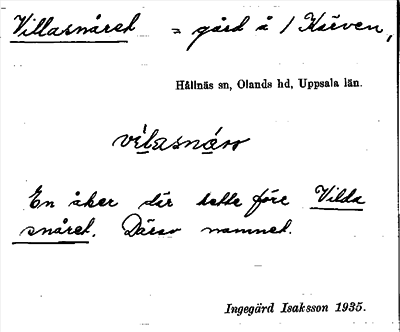 Villasnåret = gård å / Kärven,
Hållnäs sn, Olands hd, Uppsala län.
vilasnåro
En åker där hette före Vilda
snåret. Därav namnet.
Ingegärd Isaksson 1935.